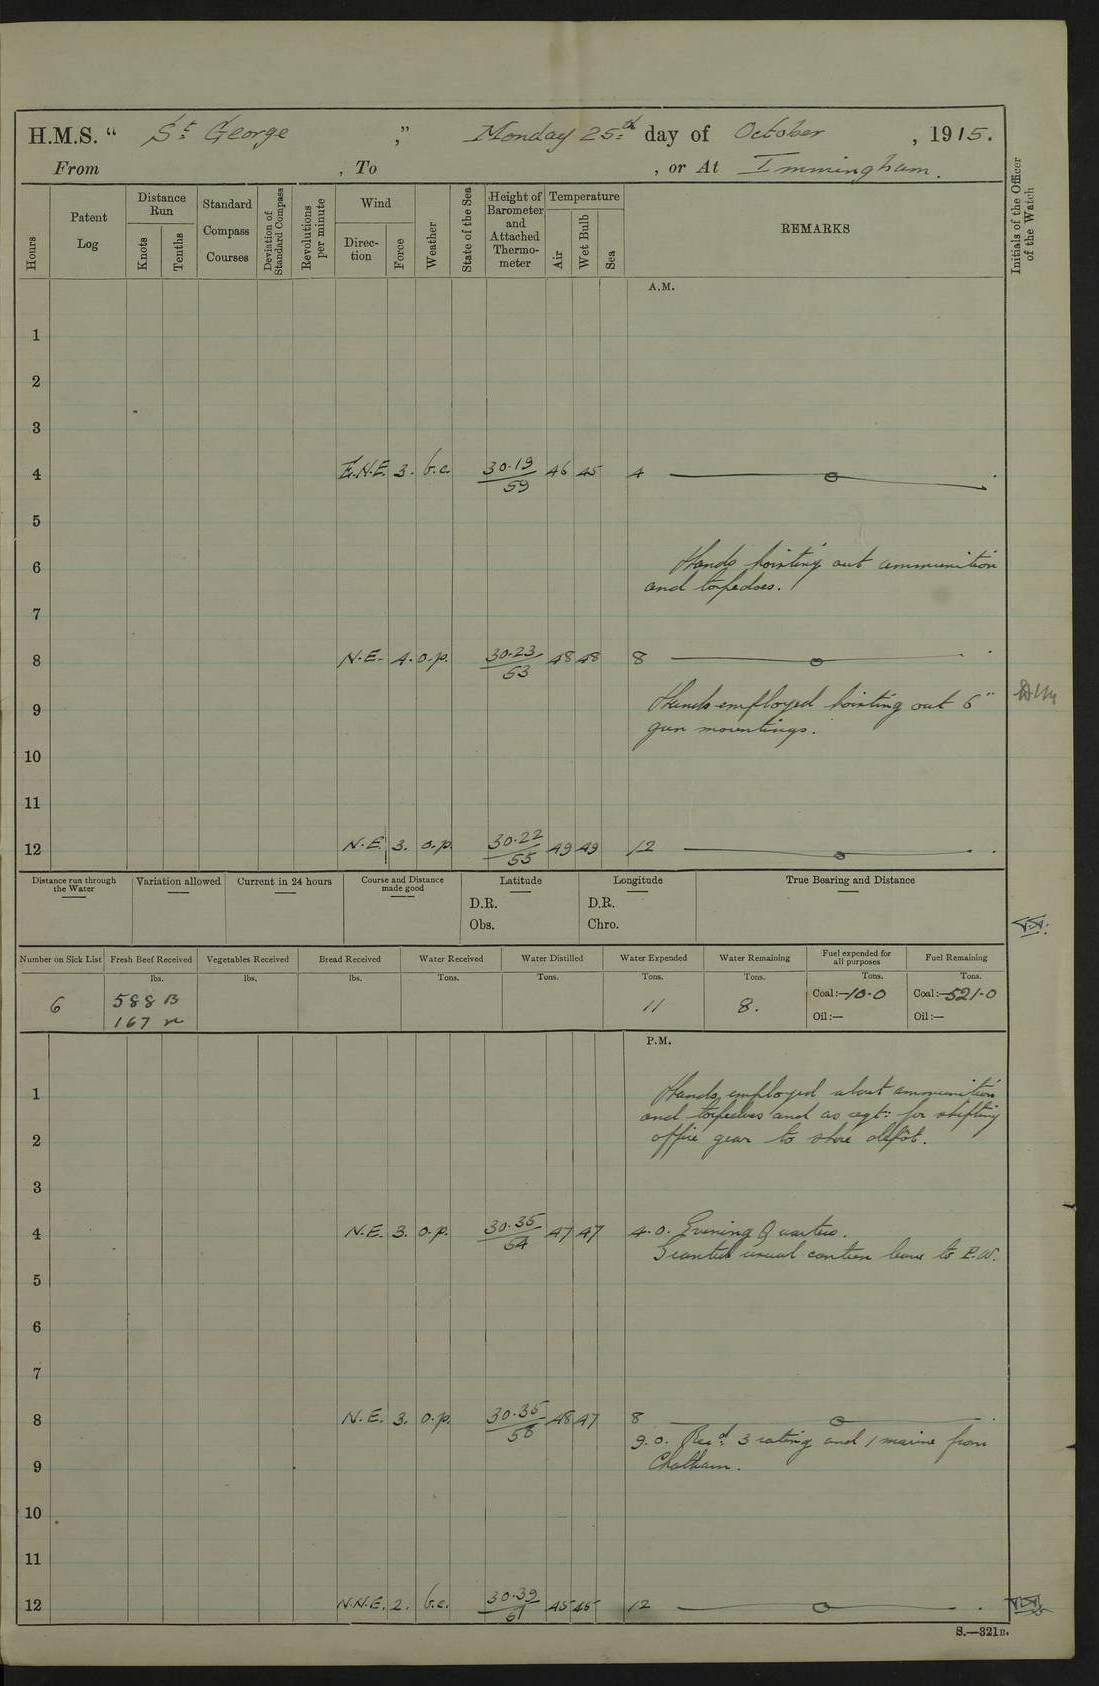 H.M.S. “ St. George ” Monday 25th day of October , 1915.
From , To , or At Immingham.
Hours
Patent Log
Distance Run
Knots
Tenths
Standard Compass Courses
Deviation of Standard Compass
Revolutions per minute
Wind
Direction
Force
Weather
State of the Sea
Height of Barometer and Attached Thermometer
Temperature
Air
Wet Bulb
Sea
REMARKS
Initials of the Officer of the Watch
A.M.
1
2
3
4 E.N.E. 3. b.c. 30.19 59 46 45 4
5
6 Hands hoisting out ammunition
and torpedoes.
7
8 N.E. 4. o.p. 30.23 53 48 48 8
9 Hands employed hoisting out 6"
gun mountings.
10
11
12 N.E. 3. o.p. 30.22 55 49 49 12
Distance run through the Water
Variation allowed
Current in 24 hours
Course and Distance made good
Latitude
D.R.
Obs.
Longitude
D.R.
Chro.
True Bearing and Distance
Number on Sick List
Fresh Beef Received
Vegetables Received
Bread Received
Water Received
Water Distilled
Water Expended
Water Remaining
Fuel expended for all purposes
Fuel Remaining
lbs. lbs. lbs. Tons. Tons. Tons. Tons. Tons. Tons.
6 588 B 11 8. Coal:—10.0 Coal:—521.0
167 Oil:— Oil:—
P.M.
1 Hands employed about ammunition
and torpedoes and as reqt: for shifting
2 office gear to store depôt.
3
4 N.E. 3. o.p. 30.35 54 47 47 4.0. Evening Quarters.
Granted usual canteen leave to P.W.
5
6
7
8 N.E. 3. o.p. 30.35 58 48 47 8
9.0. Recd: 3 rating and 1 marine from
9 Chatham.
10
11
12 N.N.E. 2. b.c. 30.39 61 45 45 12
S.—321B.